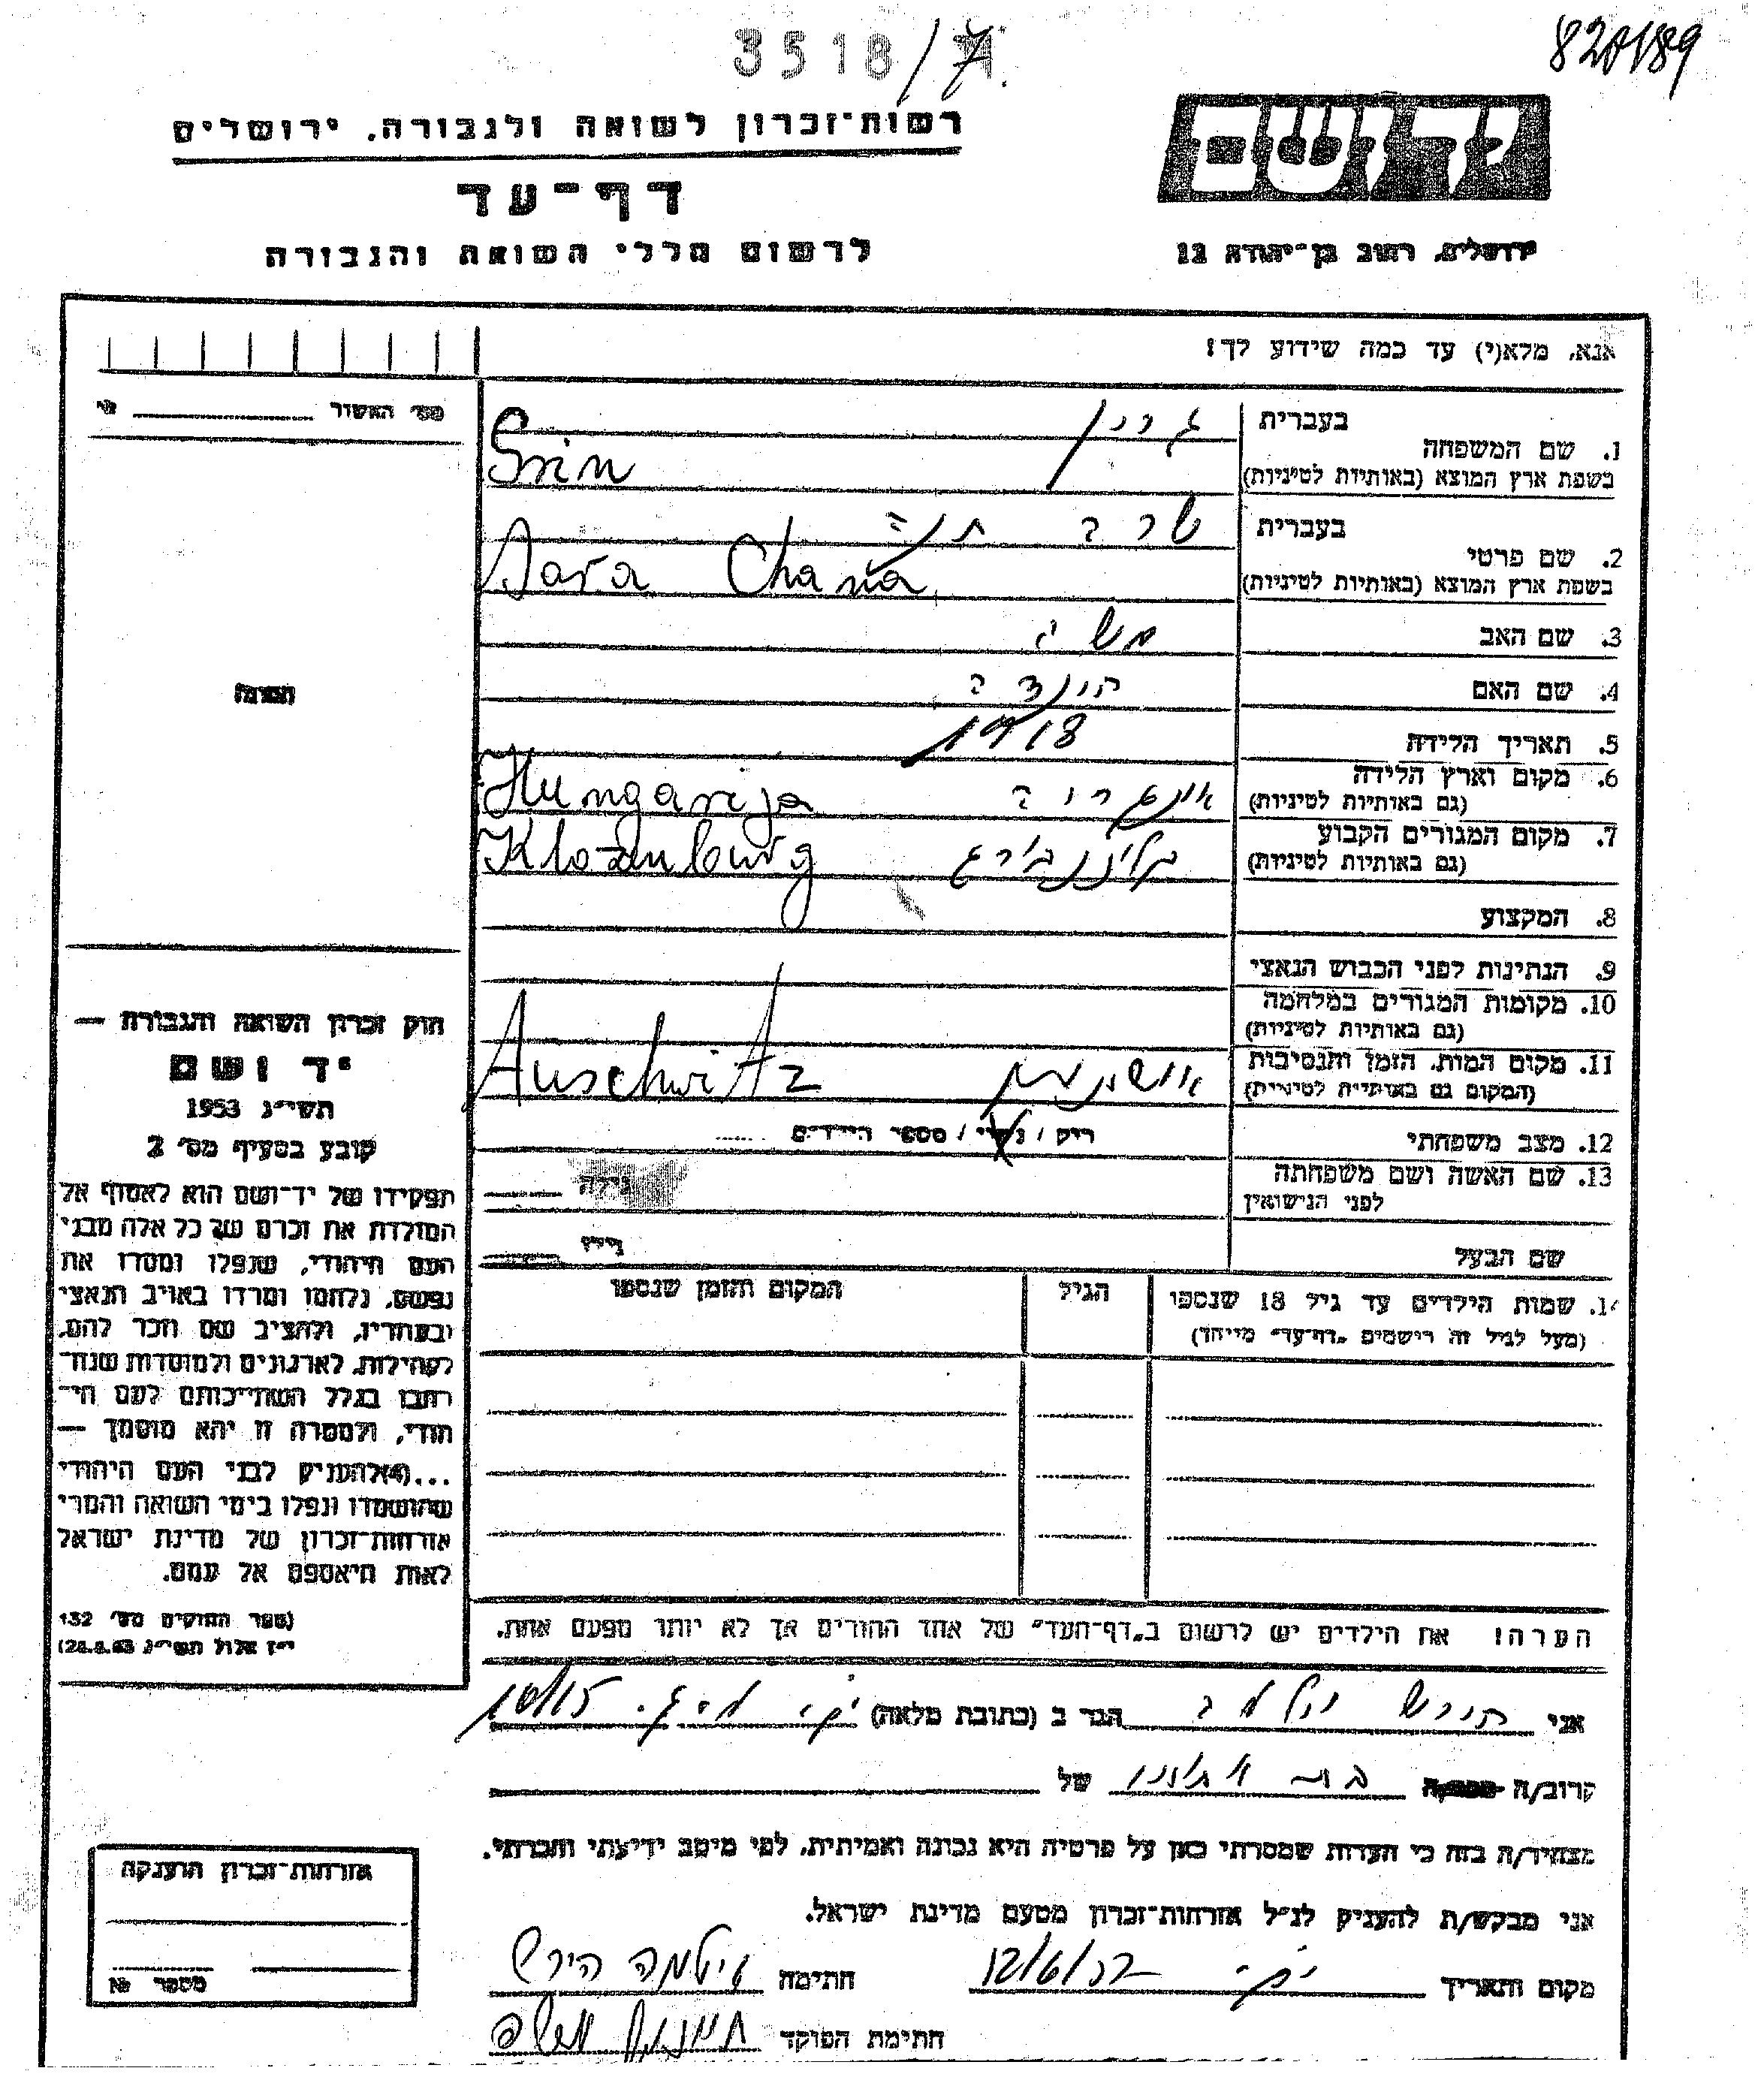 3518/7
820/189
רשות־זכרון לשואה ולגבורה, ירושלים
יד ושם
דף־עד
לרשום חללי השואה והגבורה
ירושלים, רחוב בן־יהודה 12
אנא, מלא(י) עד כמה שידוע לך!
מס׳ האשור
1. שם המשפחה
בעברית גרין
בשפת ארץ המוצא (באותיות לטיניות) Grin
2. שם פרטי
בעברית שרה חנה
בשפת ארץ המוצא (באותיות לטיניות) Sara Chana
3. שם האב משה
4. שם האם הינדה
5. תאריך הלידה 1918
6. מקום וארץ הלידה
(גם באותיות לטיניות) אונגריה Hungarija
7. מקום המגורים הקבוע
(גם באותיות לטיניות) Klozenburg
8. המקצוע
9. הנתינות לפני הכבוש הנאצי
10. מקומות המגורים במלחמה
(גם באותיות לטיניות)
11. מקום המות, הזמן והנסיבות
(המקום גם באותיות לטיניות) Auschwitz
12. מצב משפחתי
רוק / נשוי / מספר הילדים
13. שם האשה ושם משפחתה
לפני הנישואין
גילה
שם הבעל
גילו
14. שמות הילדים עד גיל 18 שנספו
(מעל לגיל זה רישמים "דף־עד" מייחד)
הגיל
המקום והזמן שנספו
הערה! את הילדים יש לרשום ב"דף־העד" של אחד ההורים אך לא יותר מפעם אחת.
חוק זכרון השואה והגבורה —
יד ושם
תשי״ג 1953
קובע בסעיף מס׳ 2
תפקידו של יד־ושם הוא לאסוף אל
המולדת את זכרם של כל אלה מבני
העם היהודי, שנפלו ומסרו את
נפשם, נלחמו ומרדו באויב הנאצי
ובעוזריו, ולהציב שם וזכר להם,
לקהילות, לארגונים ולמוסדות שנח־
רבו בגלל השתייכותם לעם הי־
הודי, ולמטרה זו יהא מוסמך —
...(4) להעניק לבני העם היהודי
שהושמדו ונפלו בימי השואה והמרי
אזרחות־זכרון של מדינת ישראל
לאות היאספם אל עמם.
(ספר החוקים מס׳ 132
י״ז אלול תשי״ג 28.8.53)
אני הירש
הגר ב (כתובת מלאה)
קרוב/ה
של
מצהיר/ה בזה כי העדות שמסרתי כאן על פרטיה היא נכונה ואמיתית, לפי מיטב ידיעתי והכרתי.
אני מבקש/ת להעניק לנ״ל אזרחות־זכרון מטעם מדינת ישראל.
מקום ותאריך
חתימה הירש
חתימת הפוקד
אזרחות־זכרון הוענקה
מספר №